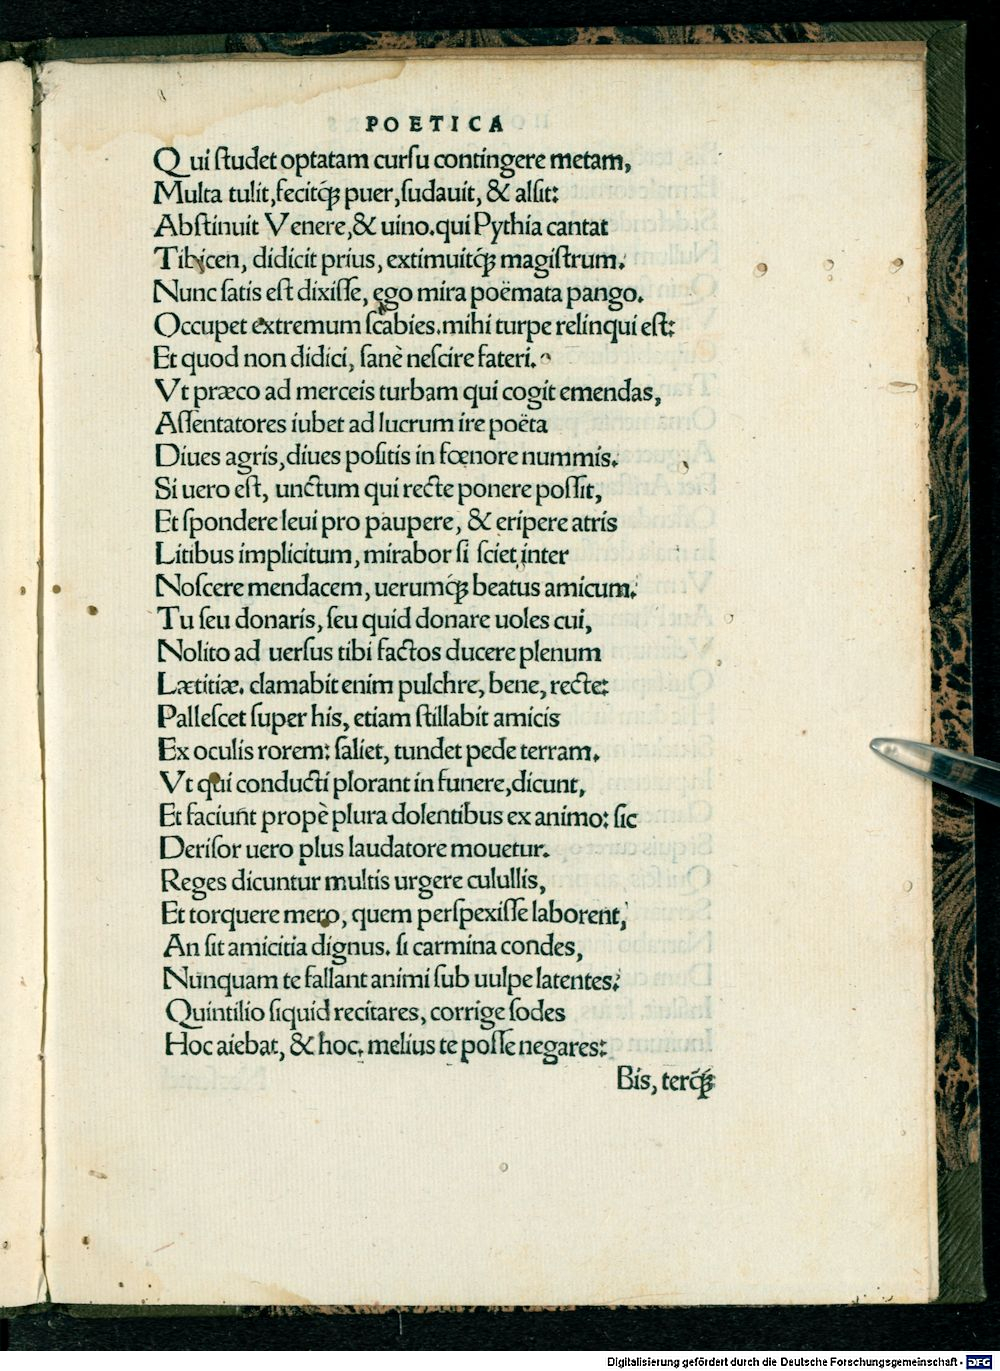 POETICA
Qui ſtudet optatam curſu contingere metam,
Multa tulit, fecitq́; puer, ſudauit, & alſit:
Abſtinuit Venere, & uino. qui Pythia cantat
Tibicen, didicit prius, extimuitq́; magiſtrum.
Nunc ſatis eſt dixiſſe, ego mira poëmata pango.
Occupet extremum ſcabies. mihi turpe relinqui eſt:
Et quod non didici, ſanè neſcire fateri.
Vt præco ad merceis turbam qui cogit emendas,
Aſſentatores iubet ad lucrum ire poëta
Diues agris, diues poſitis in fœnore nummis.
Si uero eſt, unctum qui recte ponere poſſit,
Et ſpondere leui pro paupere, & eripere atris
Litibus implicitum, mirabor ſi ſciet inter
Noſcere mendacem, uerumq́; beatus amicum.
Tu ſeu donaris, ſeu quid donare uoles cui,
Nolito ad uerſus tibi factos ducere plenum
Lætitiæ. clamabit enim pulchre, bene, recte:
Palleſcet ſuper his, etiam ſtillabit amicis
Ex oculis rorem: ſaliet, tundet pede terram.
Vt qui conducti plorant in funere, dicunt,
Et faciunt propè plura dolentibus ex animo: ſic
Deriſor uero plus laudatore mouetur.
Reges dicuntur multis urgere culullis,
Et torquere mero, quem perſpexiſſe laborent,
An ſit amicitia dignus. ſi carmina condes,
Nunquam te fallant animi ſub uulpe latentes.
Quintilio ſiquid recitares, corrige ſodes
Hoc aiebat, & hoc. melius te poſſe negares:
Bis, terq́;
Digitalisierung gefördert durch die Deutsche Forschungsgemeinschaft - DFG